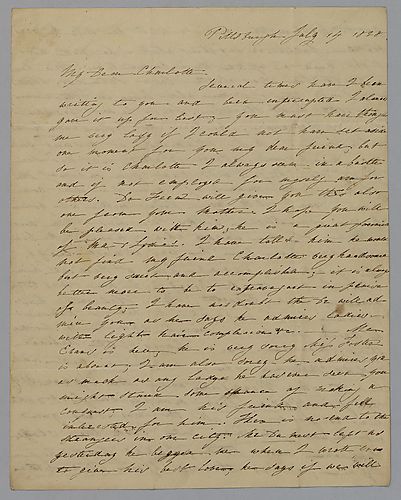 Pittsburgh July 14 1828
My Dear Charlotte.
Several times have I been
writing to you and been interrupted I always
gave it up for lost, you must have thought
me very lazy if I could not have set aside
one moment for you my dear friend, but
so it is Charlotte I always seem in a bustle
and if not employed for myself am for
others. Do will give you this also
one from your Mother. I hope you will
be pleased with him, he is a great favourite
of Ma & . I have told him he would
not find my friend Charlotte very handsome
but very sweet and accomplished, it is always
better to be in praise
of beauty, I have no doubt but he will ad
mire you as he says he admires ladies
with light hair complexion &c. Mr
Evans is here, he is very sorry Miss
is absent. I am also sorry he admires you
as much as any lady he has ever seen you
might stand some chance of making a
conquest I am his friend and feel
interested for him. There is no end to the
strangers in our city, left us
yesterday he begged me when I wrote you
to give his best love, he says if we will